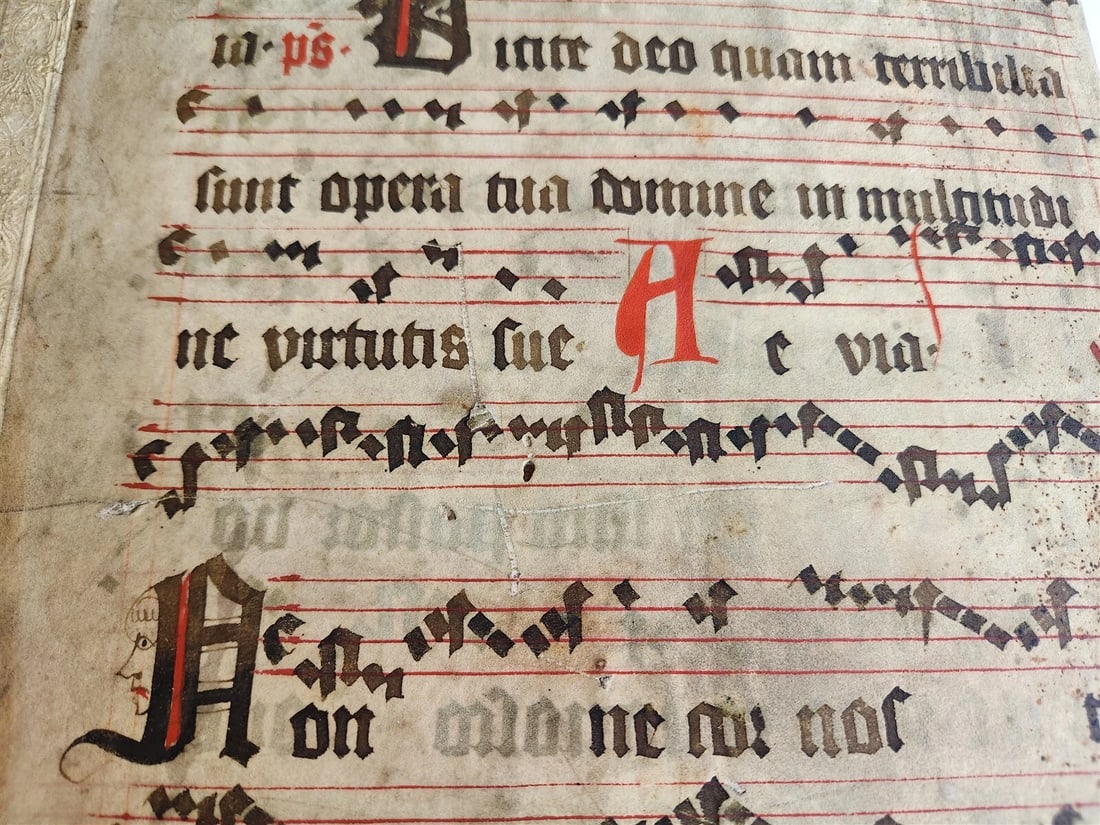 ia· ps̄· Dicite deo quam terribilia
sunt opera tua domine in multitudi
ne virtutis sue· A e via·
Non ne cor nos